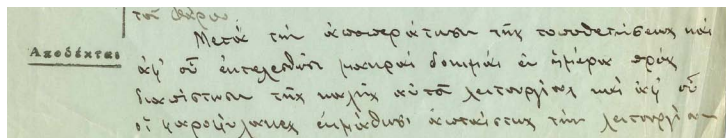 τοῦ Φάρου
Μετὰ τὴν ἀποπεράτωσιν τῆς τοποθετήσεως καὶ
Ἀποδέχεται
ἀφ' οὗ ἐκτελεσθῶσι μακραὶ δοκιμαὶ ἐν ἡμέρᾳ πρὸς
διαπίστωσιν τῆς καλῆς αὐτοῦ λειτουργίας καὶ ἀφ' οὗ
οἱ φαροφύλακες ἐκμάθωσι ἀπταίστως τὴν λειτουργίαν